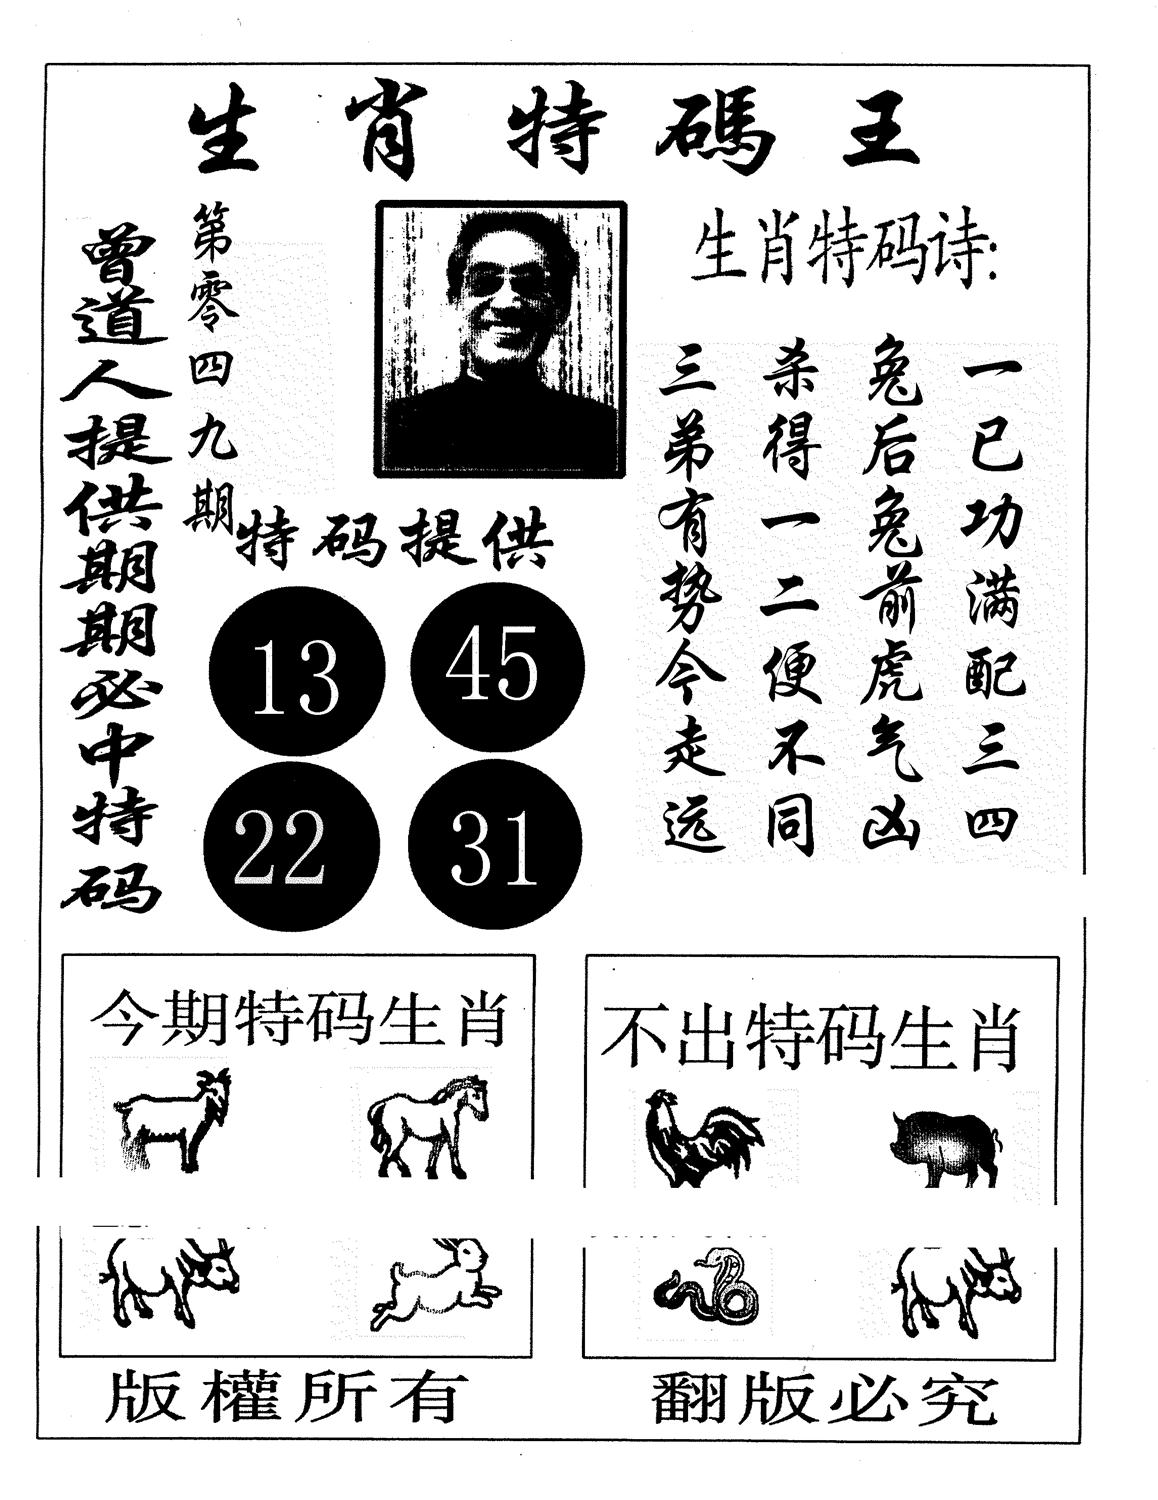 生肖特碼王
曾道人提供期期必中特码
第零四九期
生肖特码诗:
一已功满配三四
兔后兔前虎气凶
杀得一二便不同
三弟有势今走远
特码提供
13 45
22 31
今期特码生肖
不出特码生肖
版權所有
翻版必究